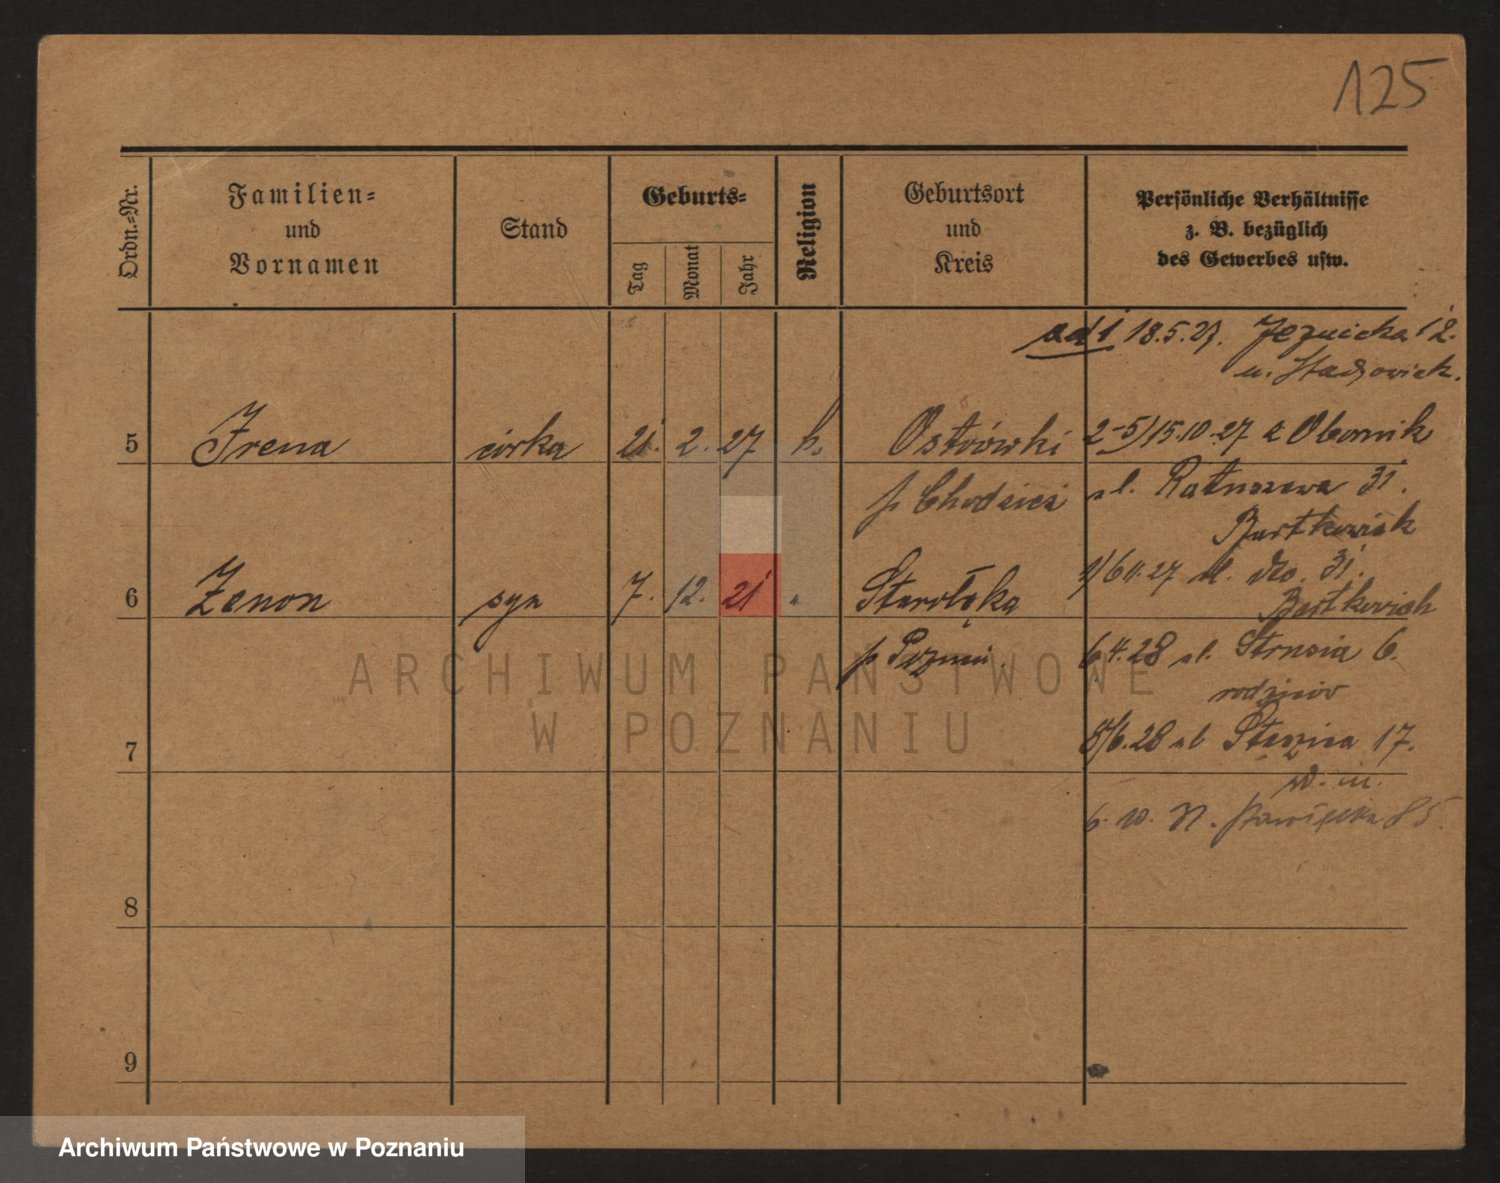 125
Ordn.=Nr.
Familien=
und
Vornamen
Stand
Geburts=
Tag
Monat
Jahr
Religion
Geburtsort
und
Kreis
Persönliche Verhältnisse
z. B. bezüglich
des Gewerbes usw.
ad 1 18.5.27. Jeznicka 12.
u.
5 Irena córka 21. 2. 27 k. Ostrówki 2-5) 15.10.27 z Obornik
p Chodzież ul. Ratuszowa 31.
Bartkowiak
6 Zenon syn 7. 12. 21 " Starołęka 31.
Bartkowiak
p Poznań. 6 4.28 ul. Strusia 6.
rodziców
7 8/6.28 ul Staszica 17.
w. m.
6. 10.
8
9
ARCHIWUM PAŃSTWOWE
W POZNANIU
Archiwum Państwowe w Poznaniu